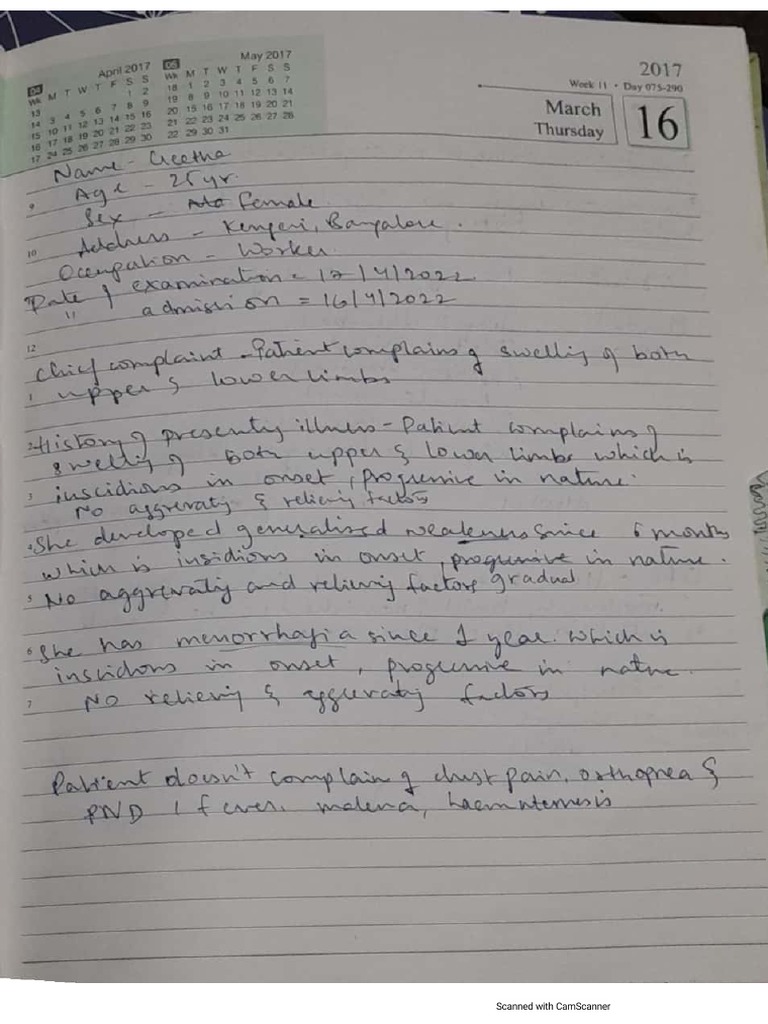 April 2017
04
Wk M T W T F S S
13 1 2
14 3 4 5 6 7 8 9
15 10 11 12 13 14 15 16
16 17 18 19 20 21 22 23
17 24 25 26 27 28 29 30
May 2017
05
Wk M T W T F S S
18 1 2 3 4 5 6 7
19 8 9 10 11 12 13 14
20 15 16 17 18 19 20 21
21 22 23 24 25 26 27 28
22 29 30 31
2017
Week 11 • Day 075-290
March
Thursday
16
Name - Geetha
9 Age - 25 yr.
Sex - Female
10 Address - Kengeri, Bangalore.
Occupation - Worker
Date of examination = 17/4/2022
11 " admission = 16/4/2022
12
Chief complaint - Patient complains of swelling of both
1 upper & lower limbs
2 History of presenting illness - Patient complains of
swelling of both upper & lower limbs which is
3 inscidious in onset, progressive in nature.
No aggrevating & relieving factors
4 She developed generalised weakness since 6 months
which is insidious in onset, progressive in nature.
5 No aggrevating and relieving factors gradual
6 She has menorrhagia since 1 year. which is
inscidious in onset, progressive in nature.
7 No relieving & aggrevating factors
Patient doesn't complain of chest pain, orthopnea &
PND / fever. malena, haematemesis
Scanned with CamScanner